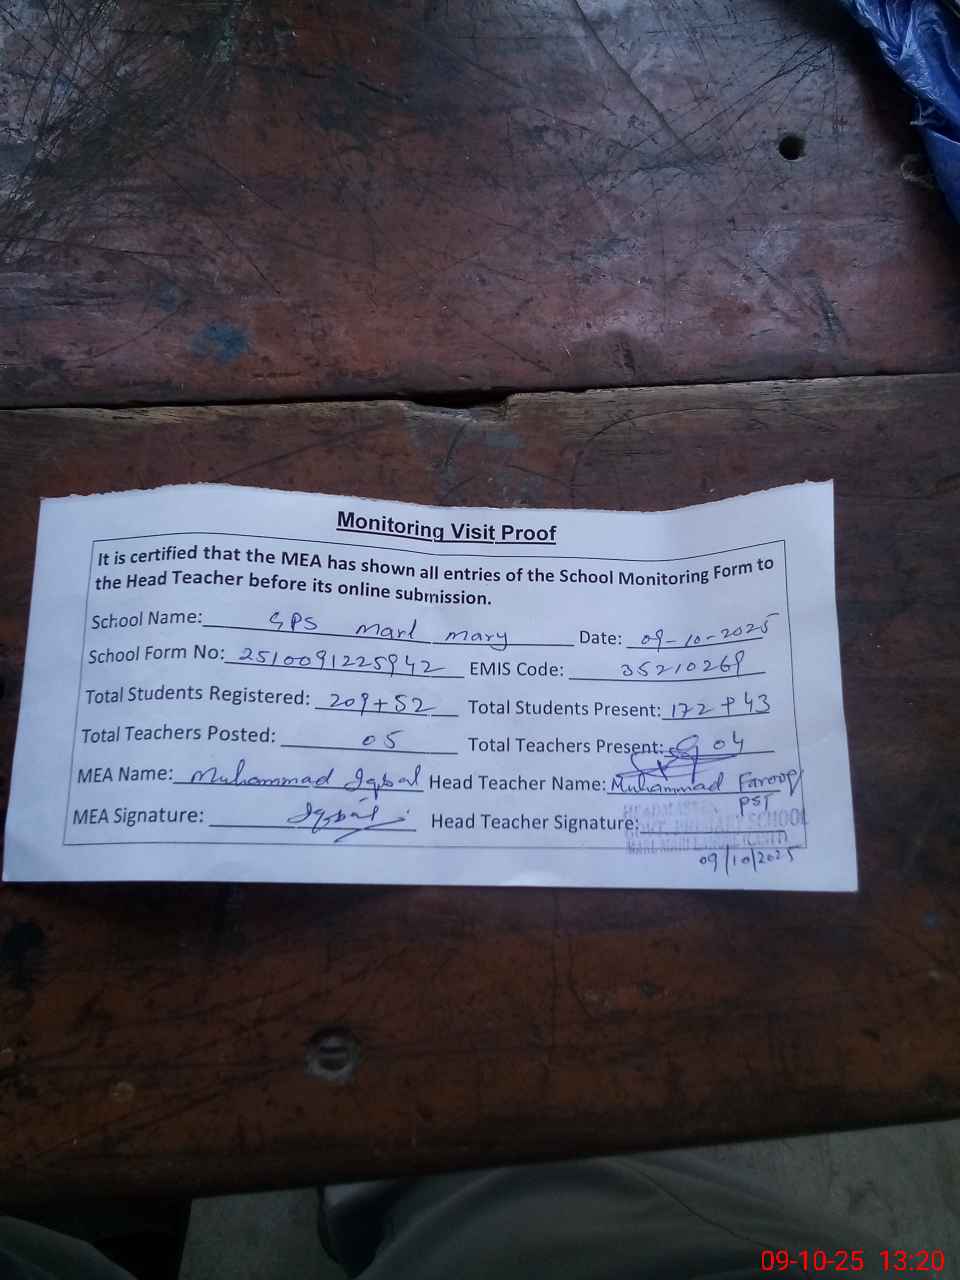 Monitoring Visit Proof
It is certified that the MEA has shown all entries of the School Monitoring Form to
the Head Teacher before its online submission.
School Name: GPS Marl mary Date: 09-10-2025
School Form No: 2510091225942 EMIS Code: 35210269
Total Students Registered: 209+52 Total Students Present: 172+43
Total Teachers Posted: 05 Total Teachers Present: 04
MEA Name: Muhammad Iqbal Head Teacher Name: Muhammad Farooq
PST
MEA Signature: Iqbal Head Teacher Signature:
HEADMASTER
GOVT. PRIMARY SCHOOL
09/10/2025
09-10-25 13:20